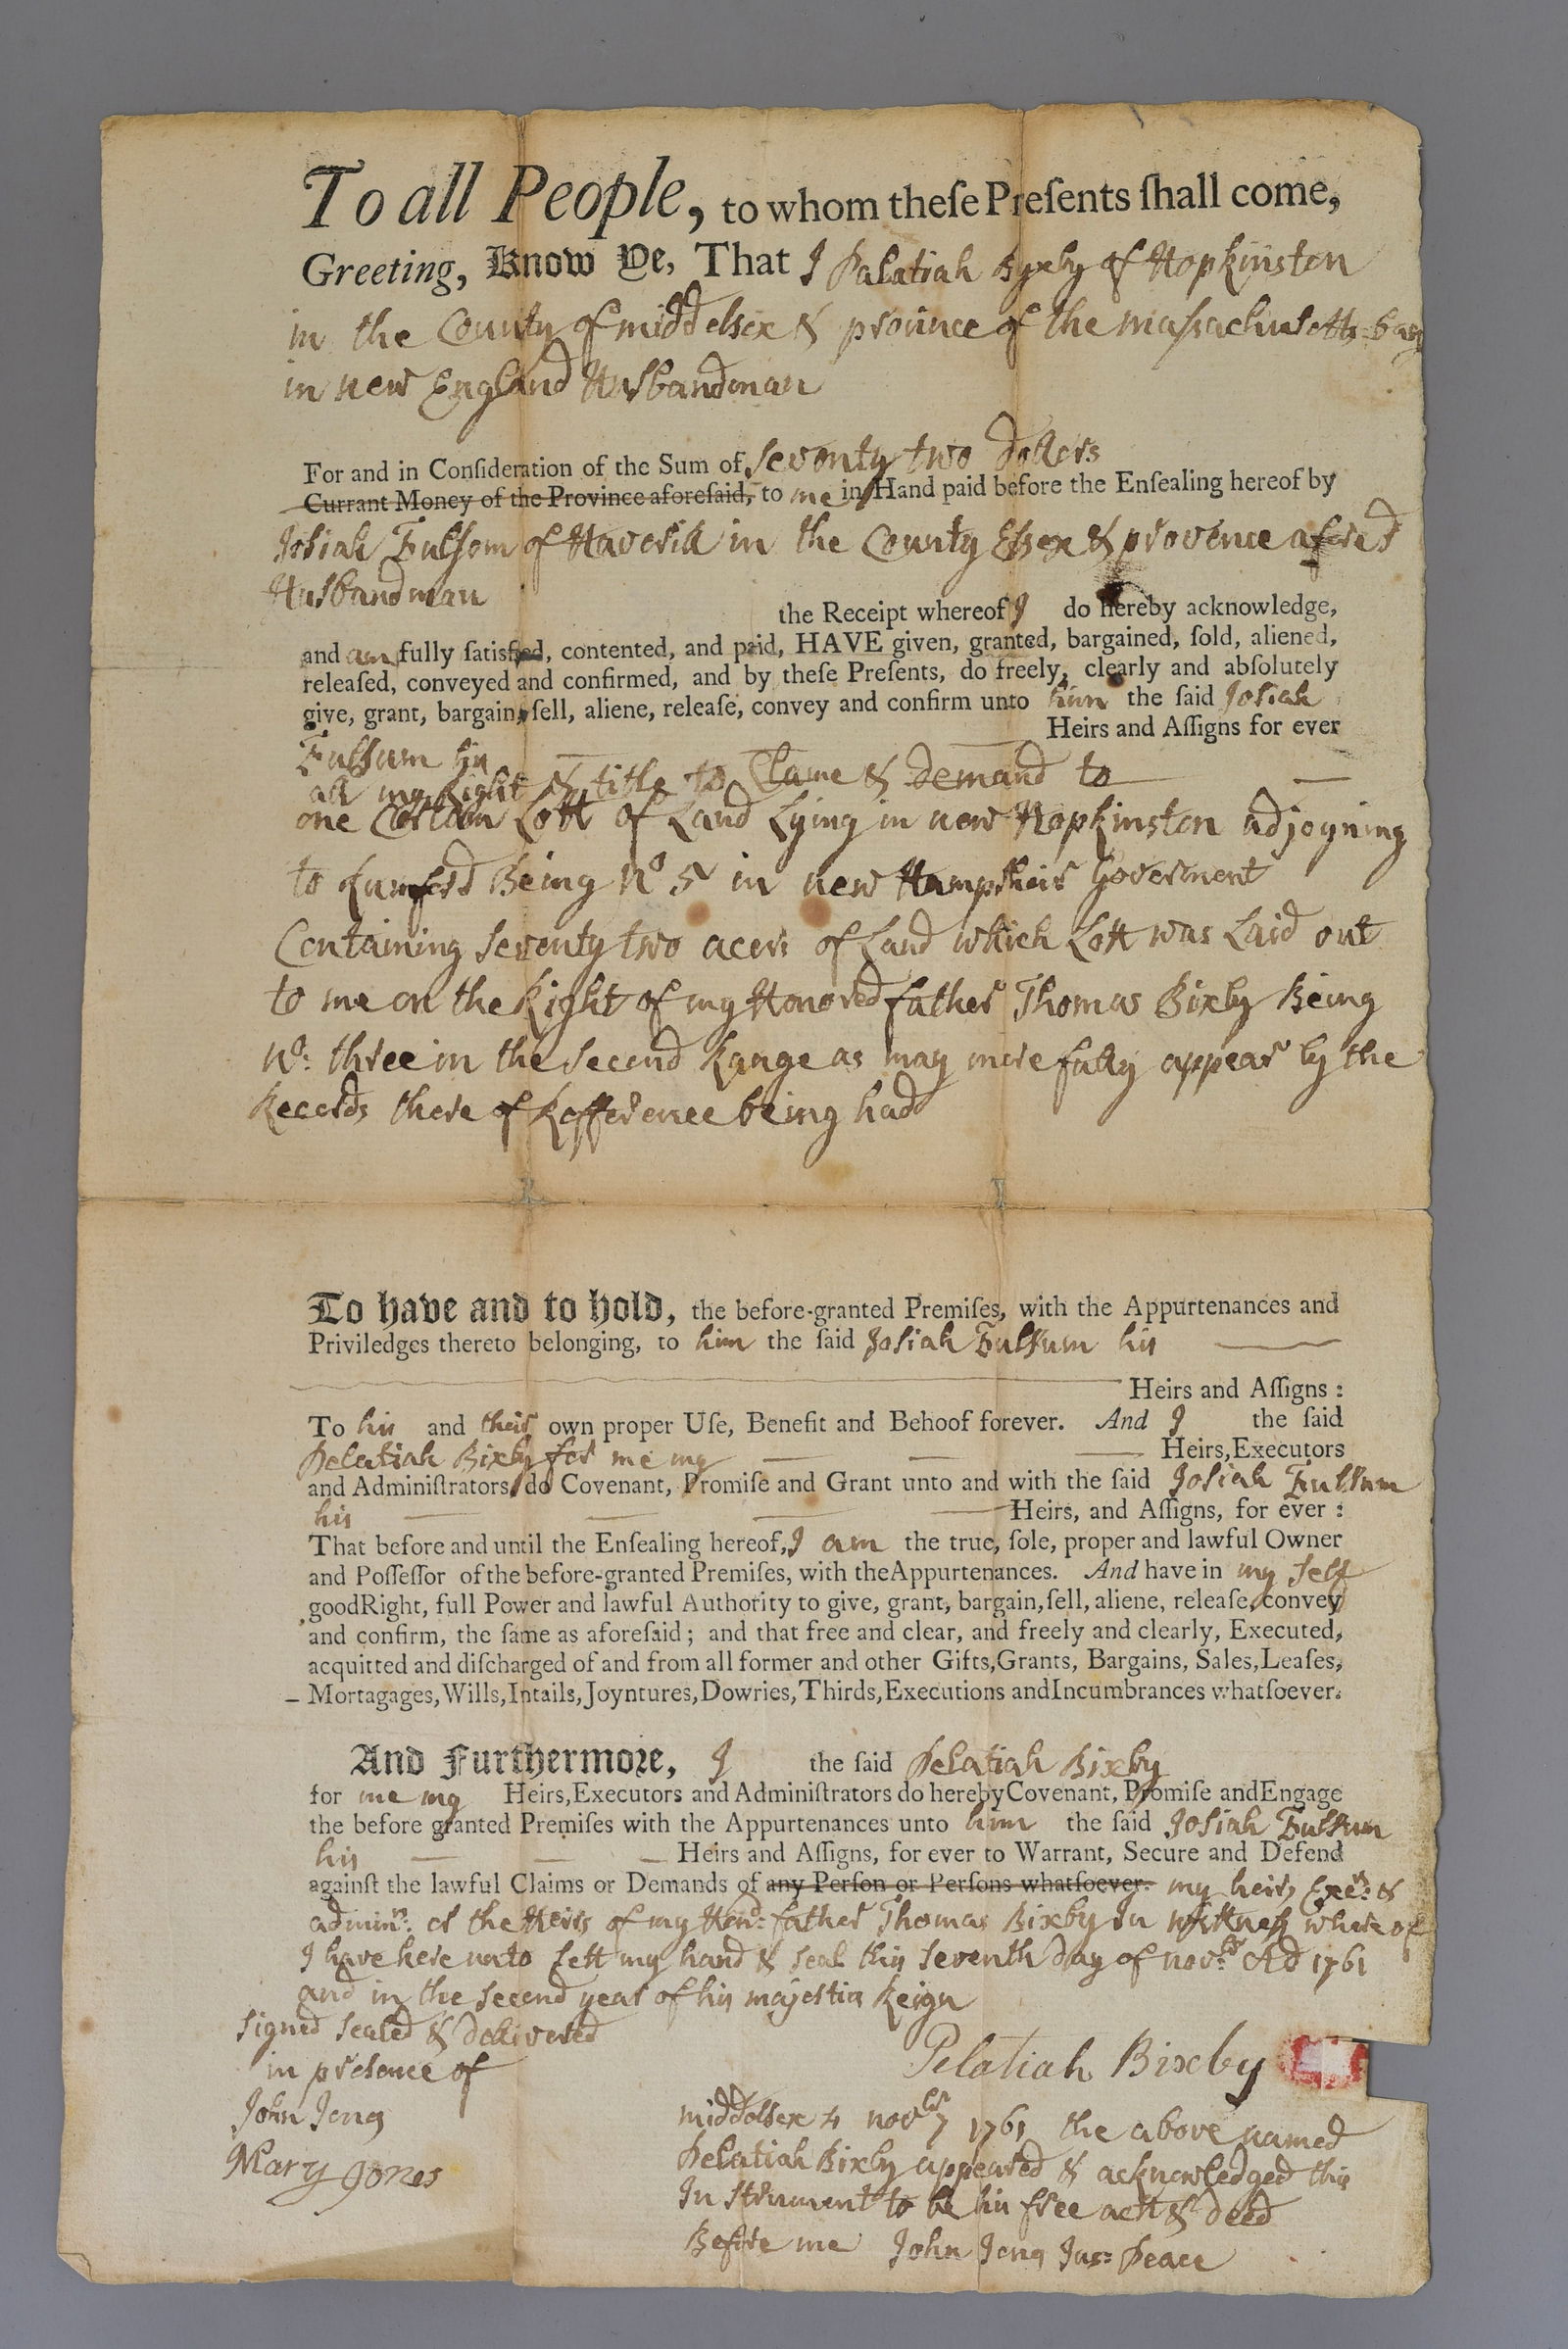 To all People, to whom theſe Preſents ſhall come,
Greeting, Know Ye, That I Palatiah Byxby of Hopkinston
in the County of middelsex & prouince of the massachusetts=bay
in new England Husbandman
For and in Conſideration of the Sum of seventy two dollers
Currant Money of the Province aforeſaid, to me in Hand paid before the Enſealing hereof by
Josiah Fulsom of Haverill in the County Essex & provence afores'd
Husbandman
the Receipt whereof I do hereby acknowledge,
and am fully ſatisfied, contented, and paid, HAVE given, granted, bargained, ſold, aliened,
releaſed, conveyed and confirmed, and by theſe Preſents, do freely, clearly and abſolutely
give, grant, bargain, ſell, aliene, releaſe, convey and confirm unto him the ſaid Josiah
Heirs and Aſſigns for ever
Fulsum his
all my Right & title to Clame & demand to
one Certain Lott of Land Lying in new Hopkinston adjoyning
to Rumford Being No 5 in new Hampsheir Goverment
Containing seventy two acers of Land which Lott was Laid out
to me on the Right of my Honored father Thomas Bixby Being
No: three in the second Range as may more fully appear by the
Records there of Refference being had
To have and to hold, the before-granted Premiſes, with the Appurtenances and
Priviledges thereto belonging, to him the ſaid Josiah Fulsum his
Heirs and Aſſigns :
To his and their own proper Uſe, Benefit and Behoof forever. And I the ſaid
Pelatiah Bixby for me my Heirs, Executors
and Adminiſtrators, do Covenant, Promiſe and Grant unto and with the ſaid Josiah Fulsum
his Heirs, and Aſſigns, for ever :
That before and until the Enſealing hereof, I am the true, ſole, proper and lawful Owner
and Poſſeſſor of the before-granted Premiſes, with the Appurtenances. And have in my self
good Right, full Power and lawful Authority to give, grant, bargain, ſell, aliene, releaſe, convey
and confirm, the ſame as aforeſaid ; and that free and clear, and freely and clearly, Executed,
acquitted and diſcharged of and from all former and other Gifts, Grants, Bargains, Sales, Leaſes,
Mortagages, Wills, Intails, Joyntures, Dowries, Thirds, Executions and Incumbrances whatſoever.
And Furthermore, I the ſaid Pelatiah Bixby
for me my Heirs, Executors and Adminiſtrators do hereby Covenant, Promiſe and Engage
the before granted Premiſes with the Appurtenances unto him the ſaid Josiah Fulsum
his Heirs and Aſſigns, for ever to Warrant, Secure and Defend
againſt the lawful Claims or Demands of any Perſon or Perſons whatſoever. my heirs Exers: &
adminrs: or the Heirs of my Hond: father Thomas Bixby In wittness where of
I have here unto sett my hand & seal this seventh day of novbr: AD 1761
and in the second year of his majestis Reign
signed sealed & delivered
in presence of
Pelatiah Bixby
John Jones
Mary Jones
middelsex ss novbr 7 1761 the above named
Pelatiah Bixby appeared & acknowledged this
Instrument to be his free act & deed
Before me John Jones Jus: Peace